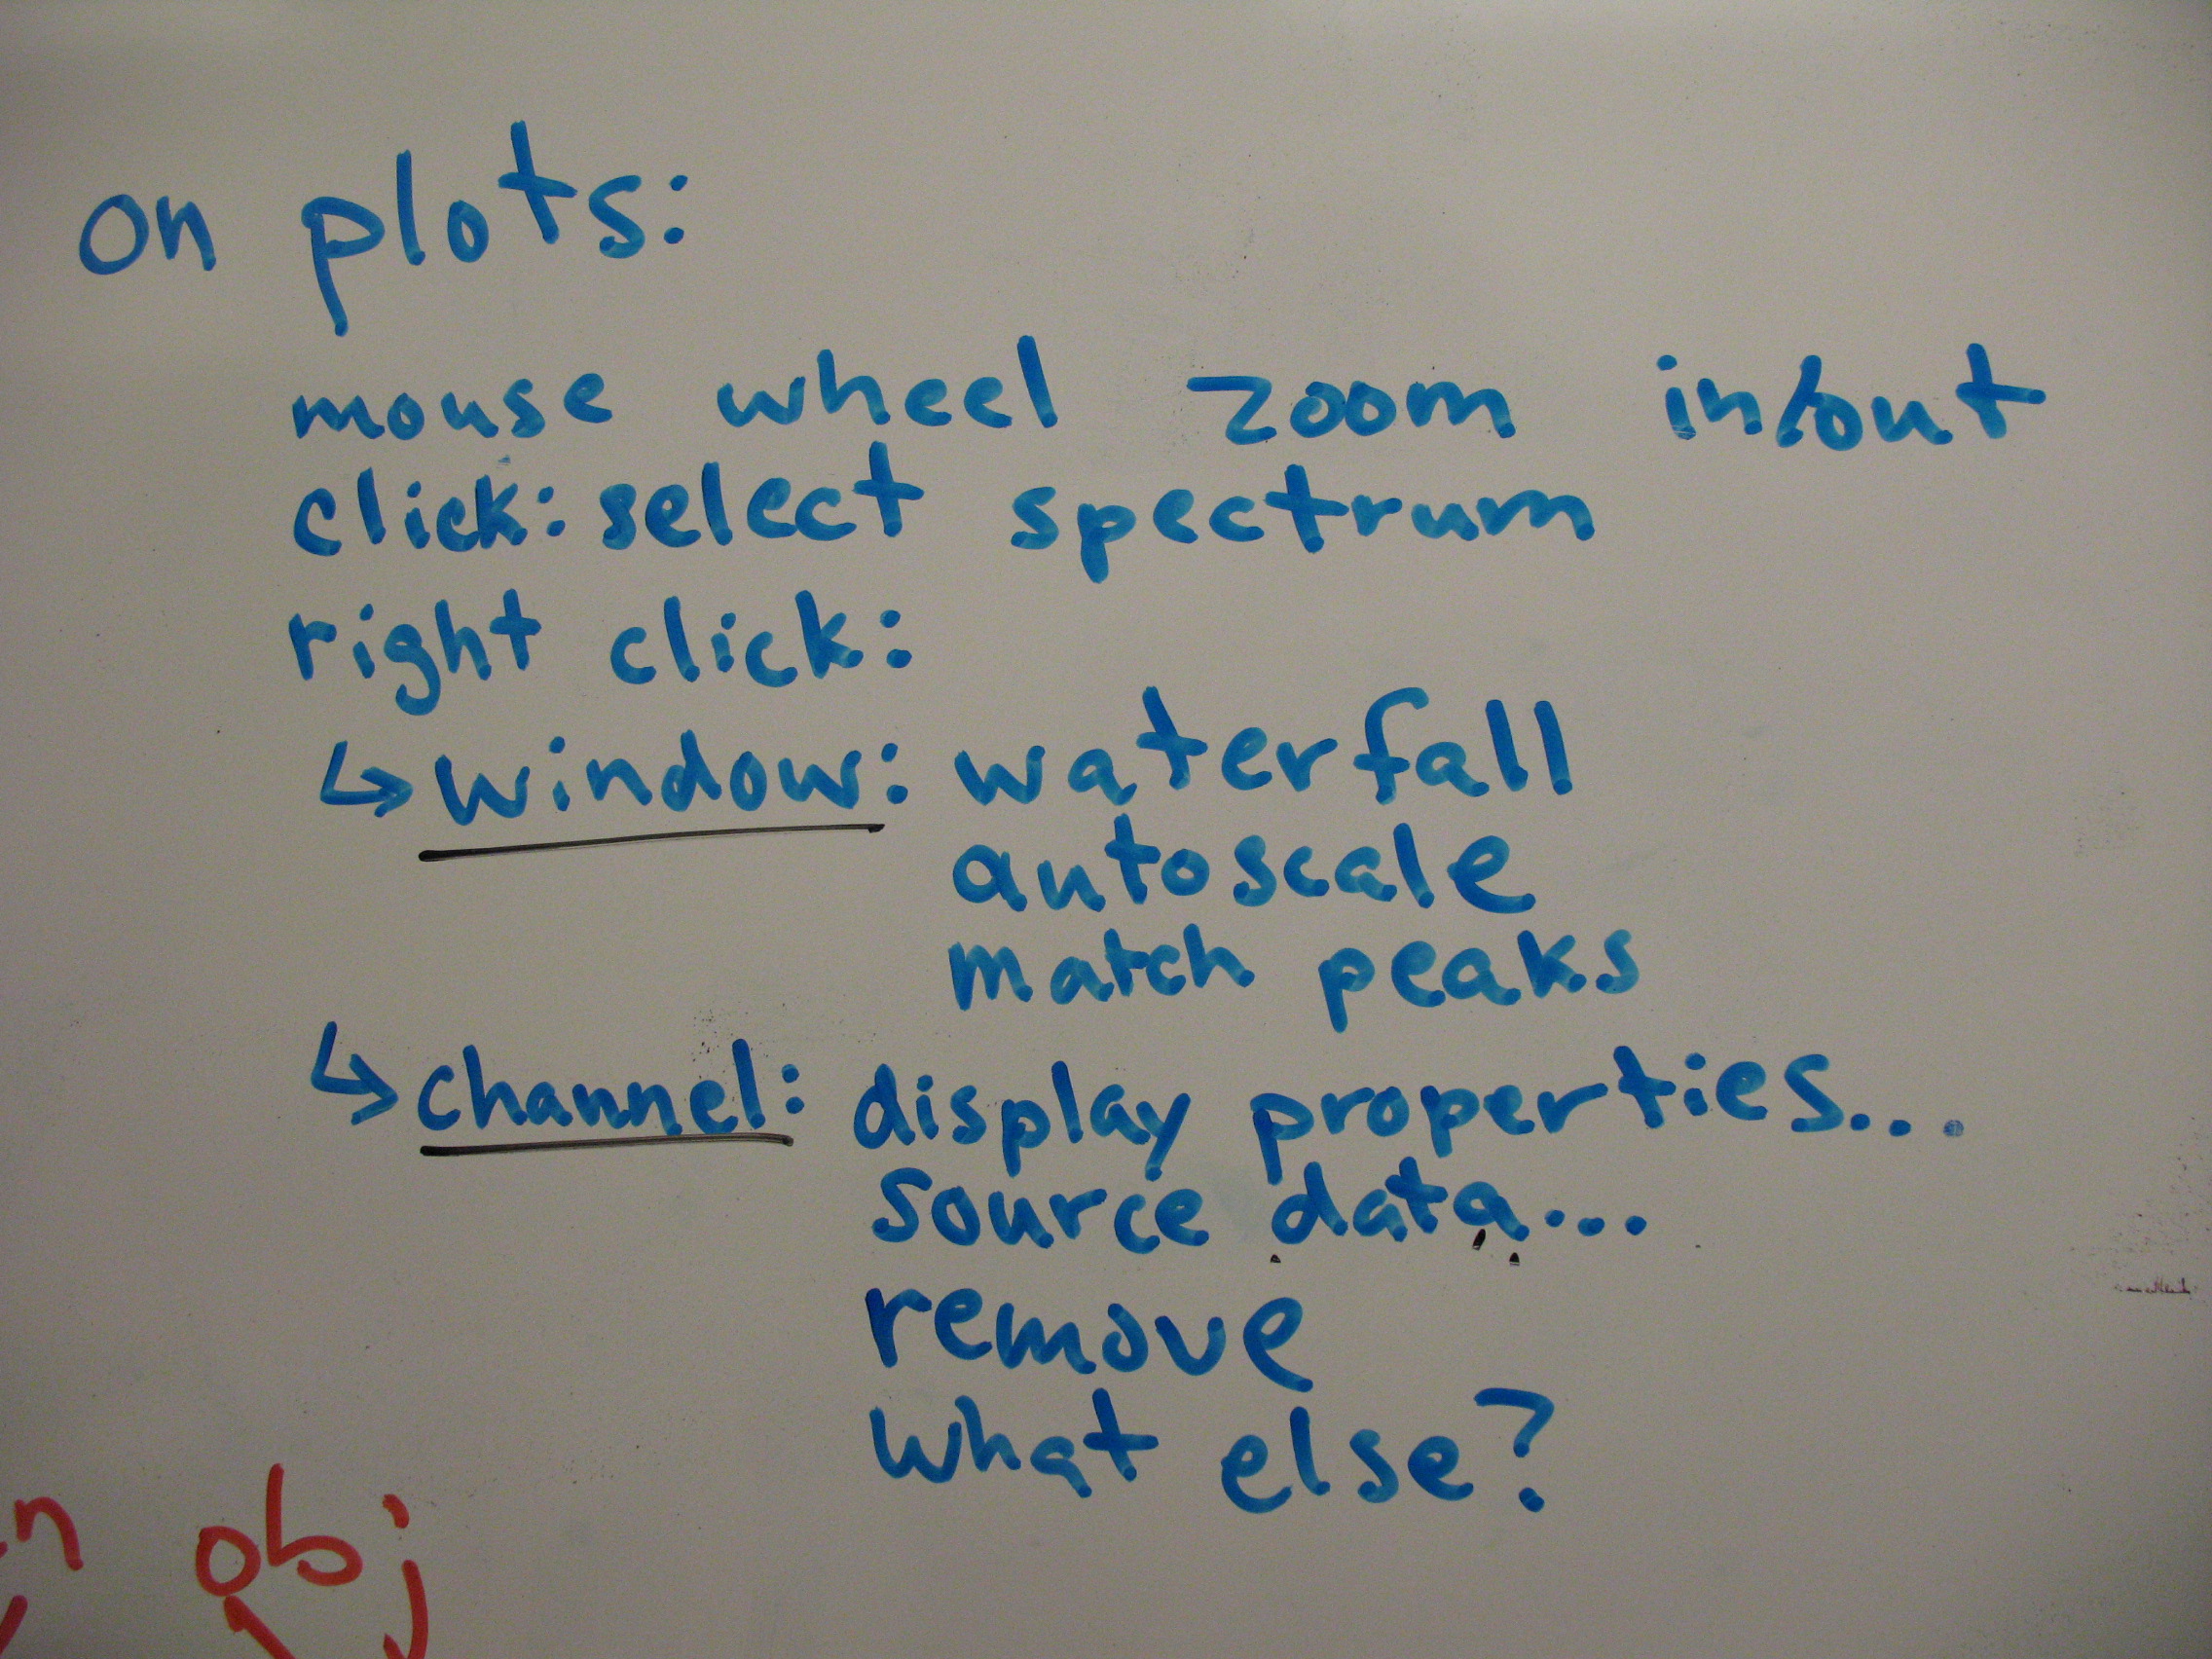 on plots:
mouse wheel zoom in/out
click: select spectrum
right click:
↳ window: waterfall
autoscale
match peaks
↳ channel: display properties...
source data...
remove
what else?
obj